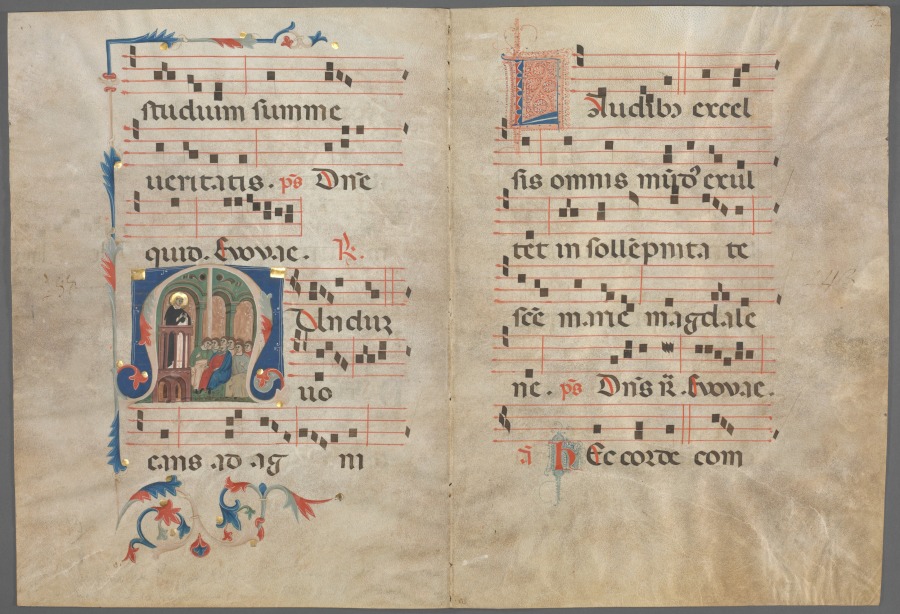 studium summe
ueritatis. ps Dñe
quid. Evovae. R.
MUnduʒ
uo
cans ad ag ni
LAudibȝ excel
sis omnis mūdꝰ exul
tet in sollēpnita te
scē marie magdale
ne. ps Dn̄s R̄. Evovae.
ā hEc corde com